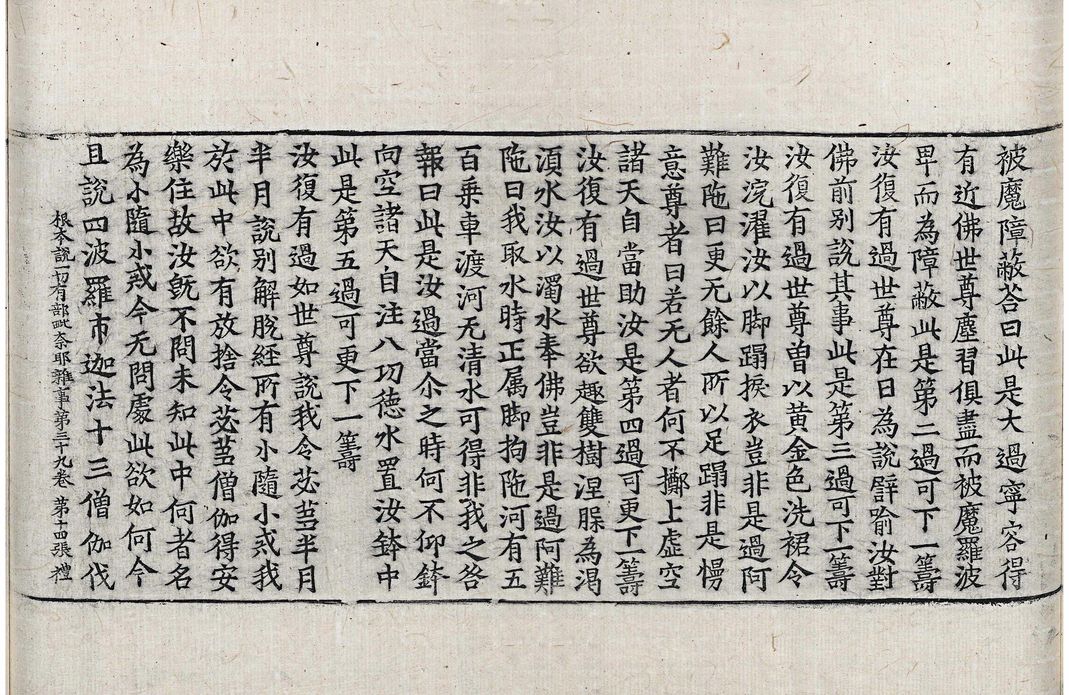 被魔障蔽荅曰此是大過寜容得
有近佛世尊塵習俱盡而被魔羅波
畀而為障蔽此是第二過可下一籌
汝復有過世尊在日為說譬喻汝對
佛前别說其事此是第三過可下一籌
汝復有過世尊曽以黄金色洗裙令
汝浣濯汝以脚蹋捩衣豈非是過阿
難陁曰更无餘人所以足蹋非是慢
意尊者曰若无人者何不擲上虚空
諸天自當助汝是第四過可更下一籌
汝復有過世尊欲趣雙樹涅槃為渇
湏水汝以濁水奉佛豈非是過阿難
陁曰我取水時正属脚拘陁河有五
百乗車渡河无清水可得非我之咎
報曰此是汝過當尒之時何不仰鉢
向空諸天自注八功徳水置汝鉢中
此是第五過可更下一籌
汝復有過如世尊說我令苾蒭半月
半月說别解脫經所有小隨小戒我
於此中欲有放捨令苾蒭僧伽得安
樂住故汝旣不問未知此中何者名
為小隨小戒今无問處此欲如何今
且說四波羅市迦法十三僧伽伐
根本說一切有部毗奈耶雜事第三十九卷 第十四張 禮